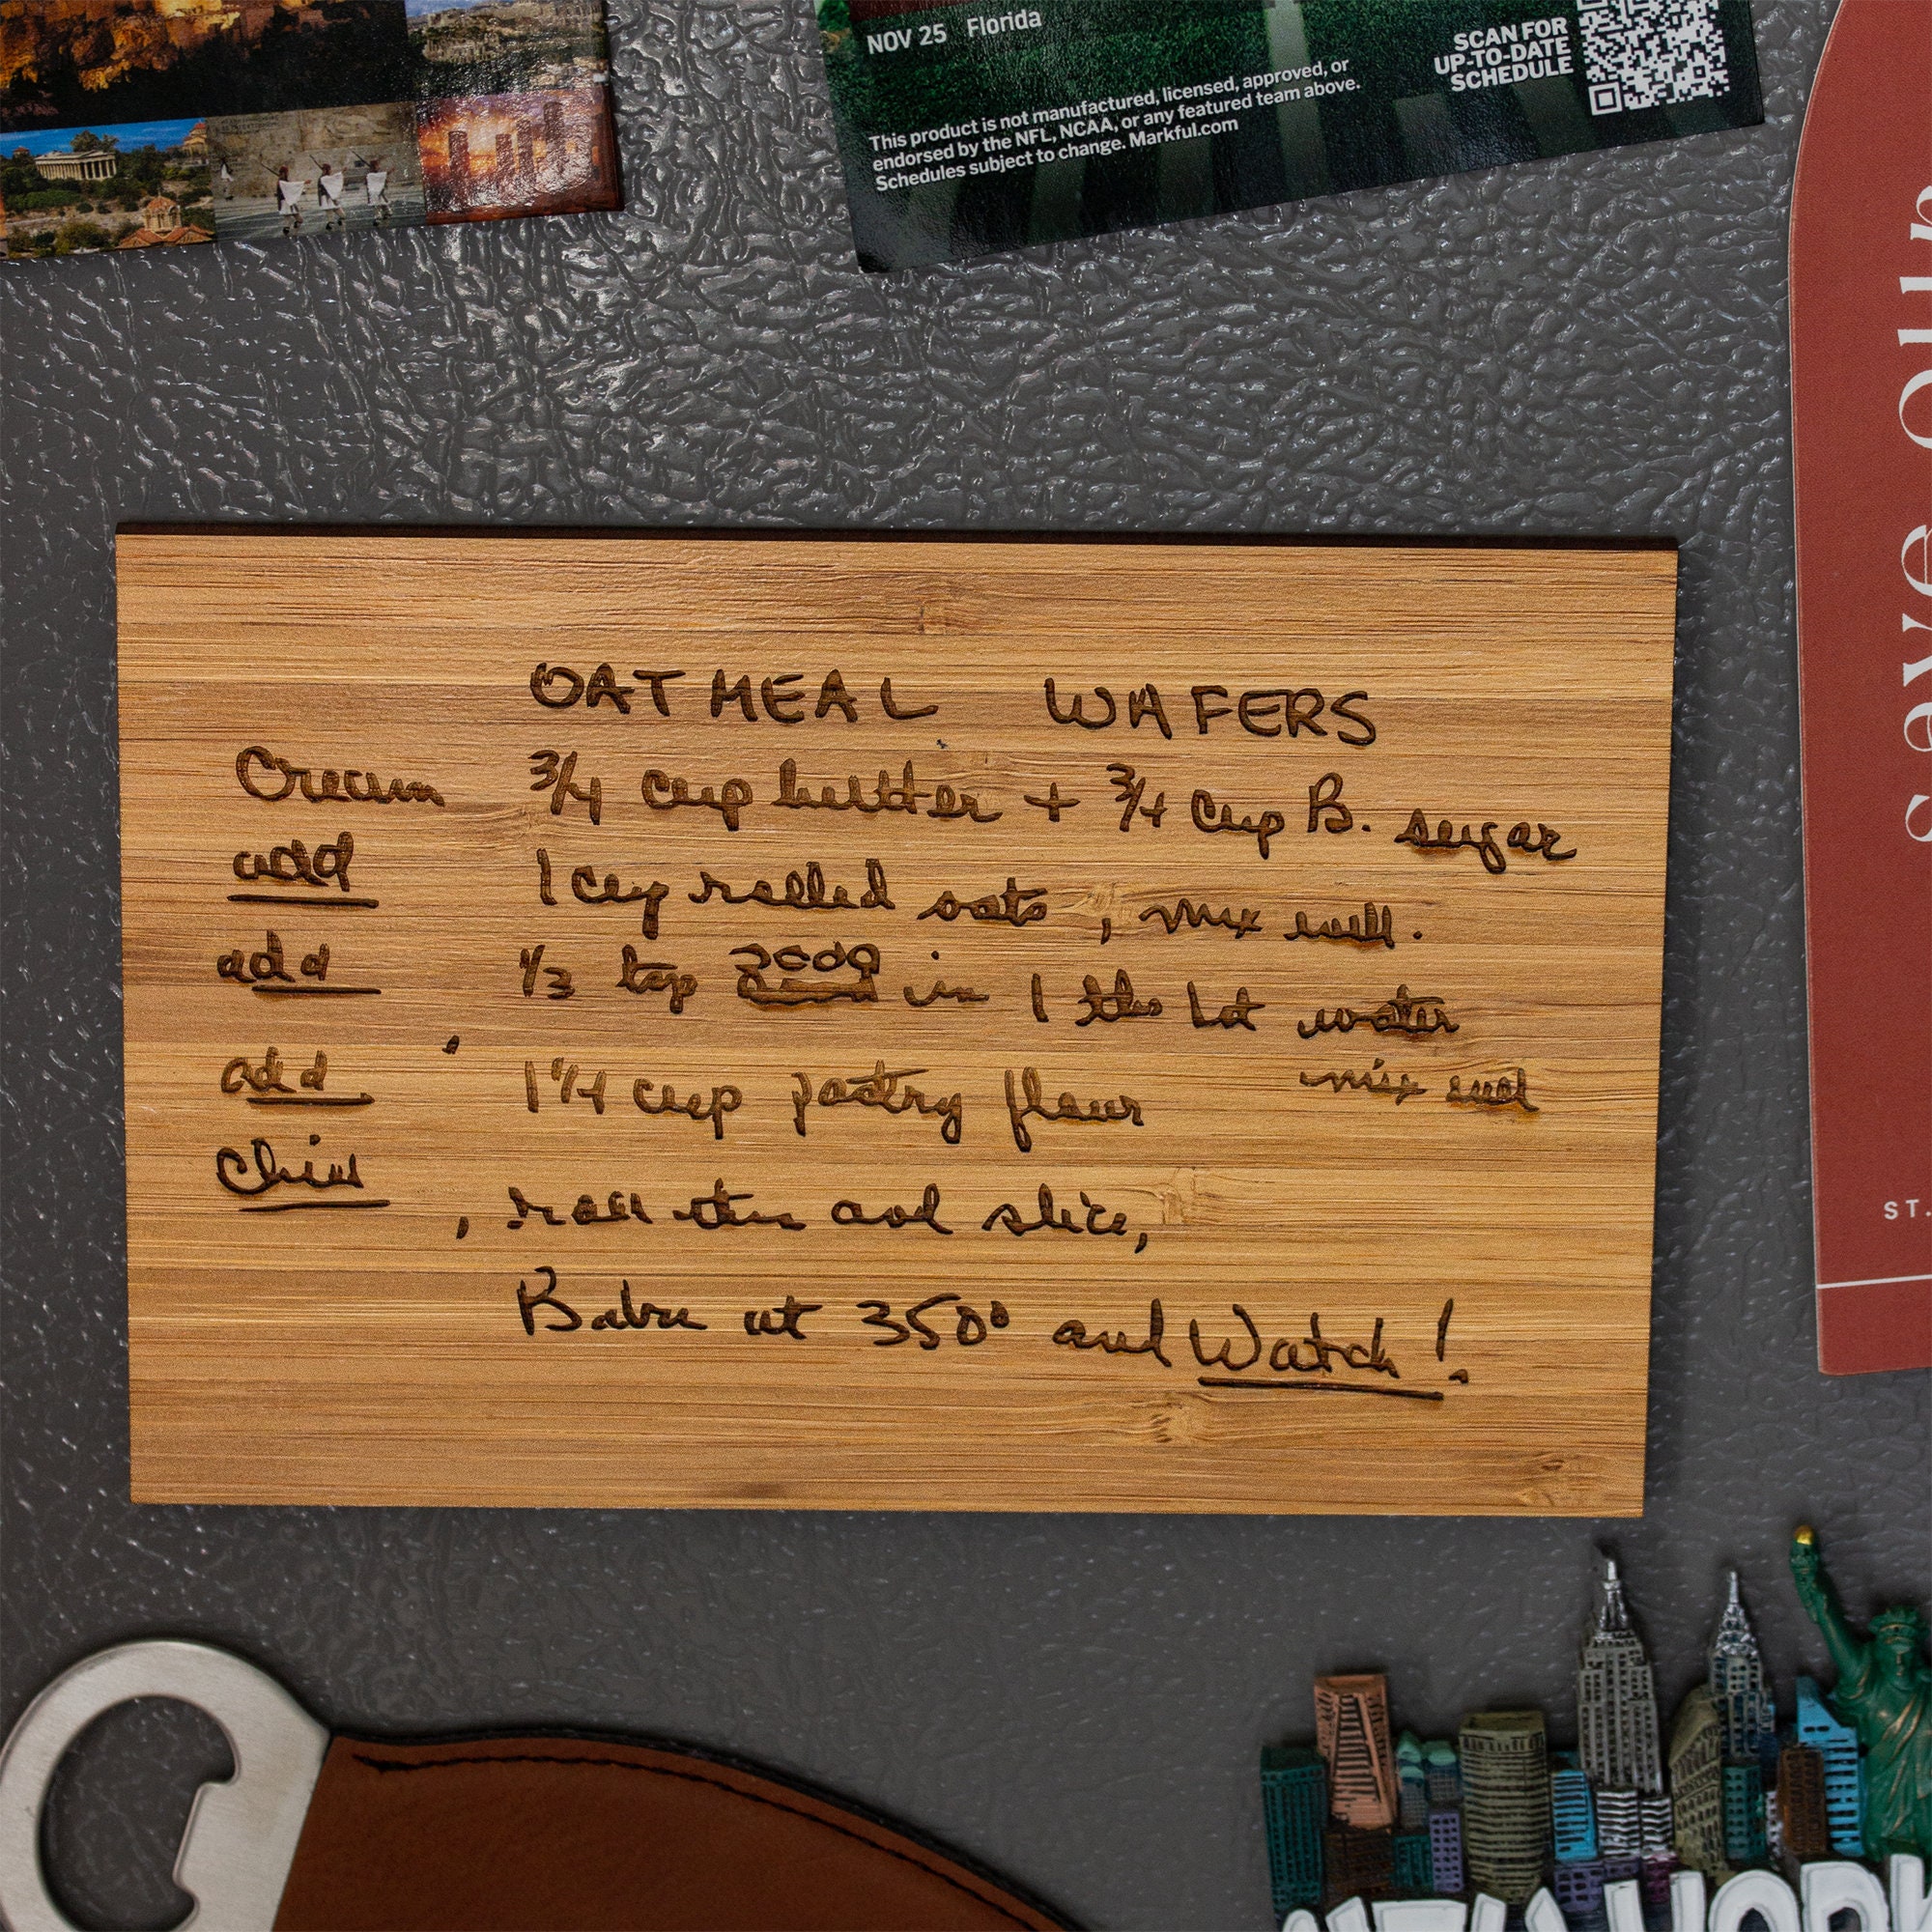 NOV 25 Florida
This product is not manufactured, licensed, approved, or
endorsed by the NFL, NCAA, or any featured team above.
Schedules subject to change. Markful.com
SCAN FOR
UP-TO-DATE
SCHEDULE
save our
ST.
OATMEAL WAFERS
Cream 3/4 cup butter + 3/4 cup B. sugar
add 1 cup rolled oats, mix well.
add 1/3 tsp soda in 1 tbs hot water
mix well
add 1 1/4 cup pastry flour
Chill
, roll thin and slice,
Bake at 350° and Watch!
NEW YORK